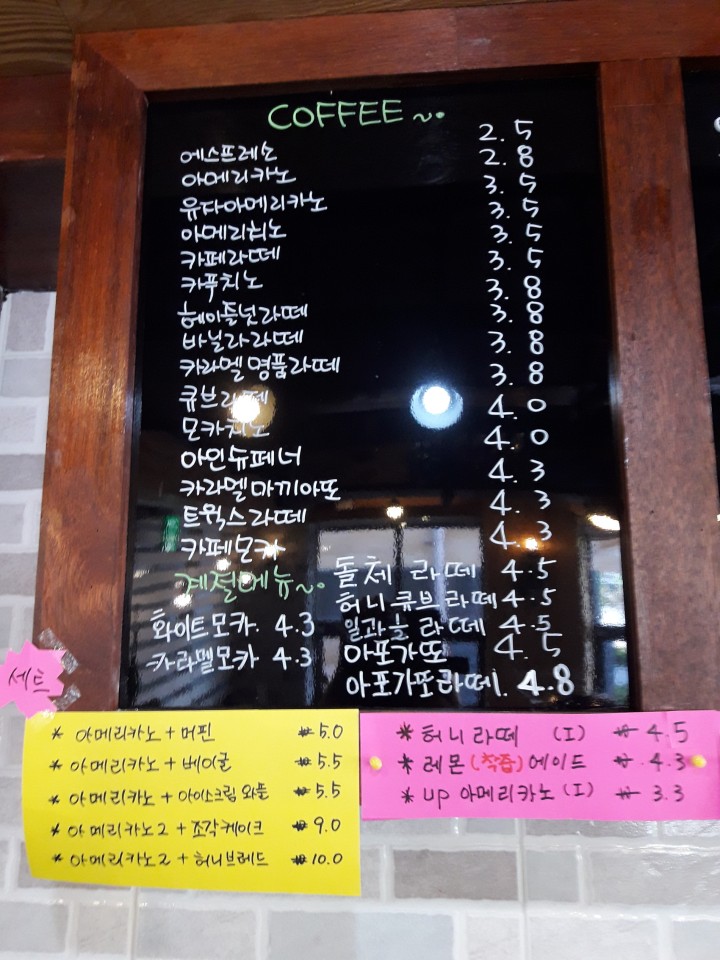 COFFEE ~.
에스프레소 2.5
아메리카노 2.8
유자아메리카노 3.5
아메리치노 3.5
카페라떼 3.5
카푸치노 3.5
헤이즐넛라떼 3.8
바닐라라떼 3.8
카라멜명품라떼 3.8
큐브라떼 3.8
모카치노 4.0
아인슈페너 4.0
카라멜마끼아또 4.3
트윅스라떼 4.3
카페모카 4.3
계절메뉴~.
화이트모카. 4.3
카라멜모카 4.3
돌체 라떼 4.5
허니큐브라떼 4.5
일과놀 라떼 4.5
아포가또 4.5
아포가또라떼. 4.8
세트
* 아메리카노 + 머핀 ₩5.0
* 아메리카노 + 베이글 ₩5.5
* 아메리카노 + 아이스크림 와플 ₩5.5
* 아메리카노2 + 조각케이크 ₩9.0
* 아메리카노2 + 허니브레드 ₩10.0
* 허니라떼 (I) ₩ 4.5
* 레몬(착즙)에이드 ₩ 4.3
* up 아메리카노(I) ₩ 3.3